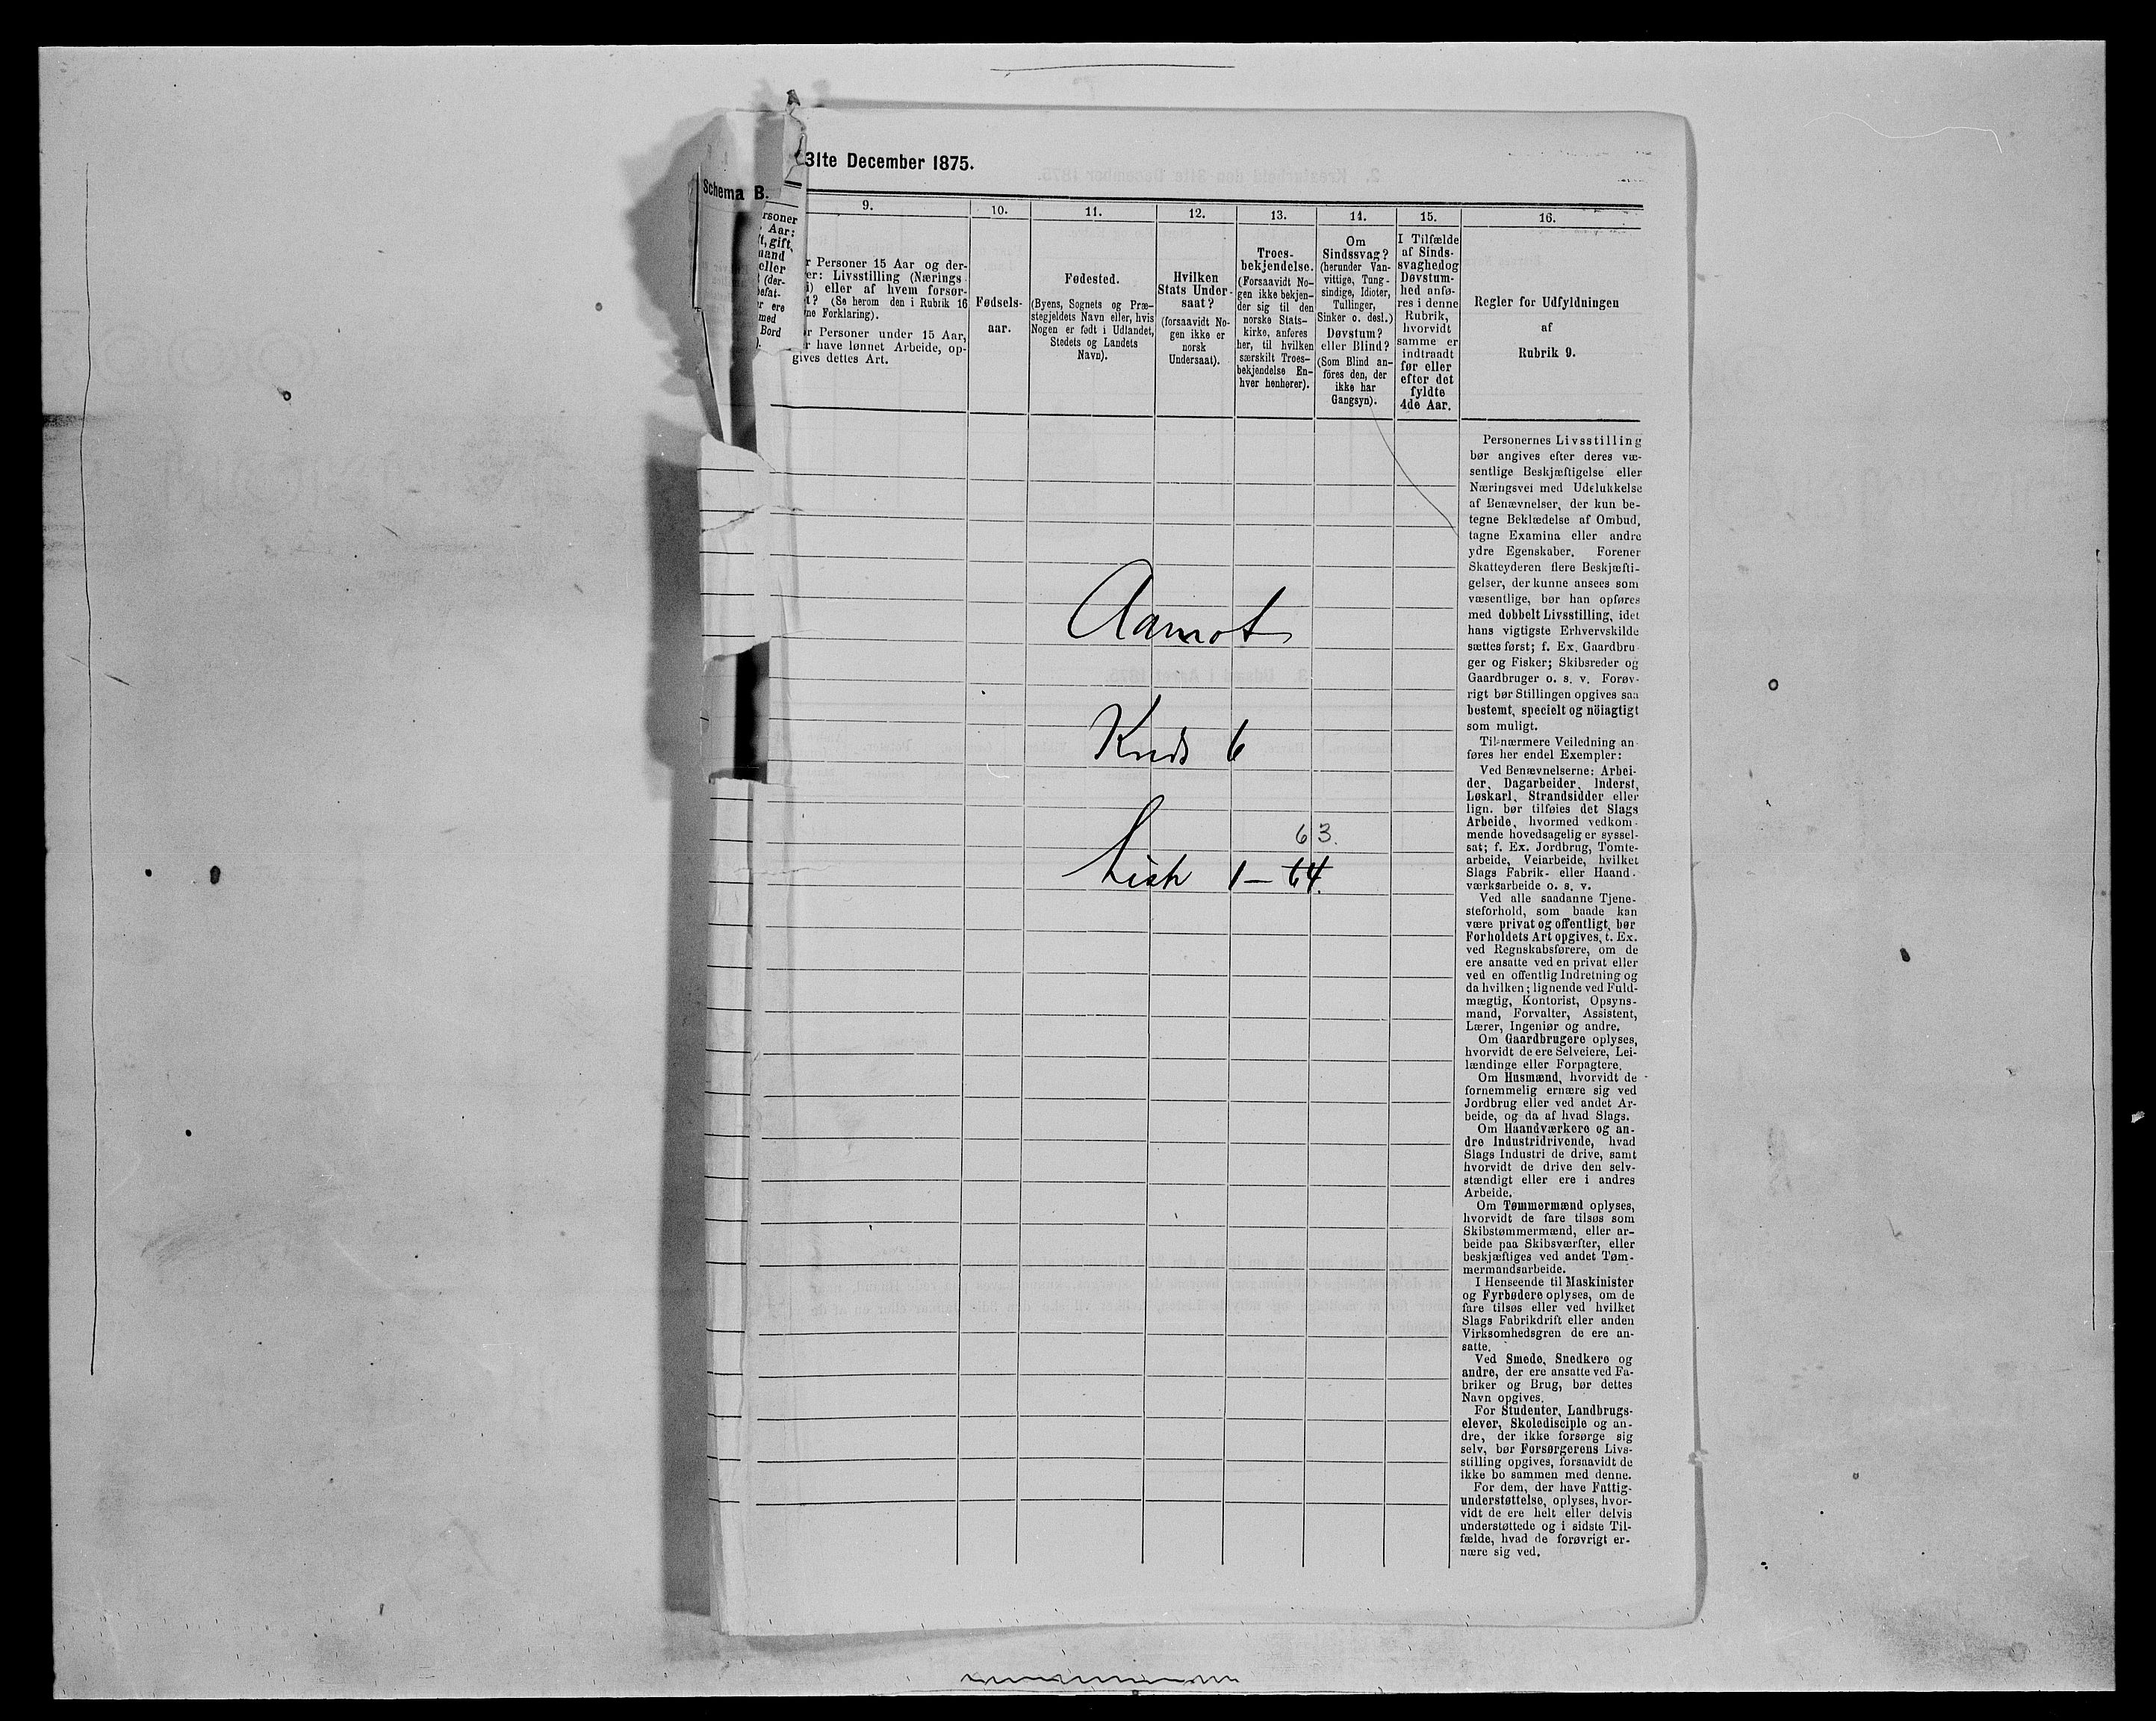 31te December 1875.
Schema B.
rsoner
Aar:
t, gift,
mand
eller
(der-
befat-
r ere
med
Bord
).
9.
r Personer 15 Aar og der-
er: Livsstilling (Nærings-
i) eller af hvem forsør-
t? (Se herom den i Rubrik 16
ne Forklaring).
r Personer under 15 Aar,
r have lønnet Arbeide, op-
gives dettes Art.
10.
Fødsels-
aar.
11.
Fødested.
(Byens, Sognets og Præ-
stegjeldets Navn eller, hvis
Nogen er født i Udlandet,
Stedets og Landets
Navn).
12.
Hvilken
Stats Under-
saat?
(forsaavidt No-
gen ikke er
norsk
Undersaat).
13.
Troes-
bekjendelse.
(Forsaavidt No-
gen ikke bekjen-
der sig til den
norske Stats-
kirke, anføres
her, til hvilken
særskilt Troes-
bekjendelse En-
hver henhører).
14.
Om
Sindssvag?
(herunder Van-
vittige, Tung-
sindige, Idioter,
Tullinger,
Sinker o. desl.)
Døvstum?
eller Blind?
(Som Blind an-
føres den, der
ikke har
Gangsyn).
15.
I Tilfælde
af Sinds-
svaghed og
Døvstum-
hed anfø-
res i denne
Rubrik,
hvorvidt
samme er
indtraadt
før eller
efter det
fyldte
4de Aar.
16.
Regler for Udfyldningen
af
Rubrik 9.
Personernes Livsstilling
bør angives efter deres væ-
sentlige Beskjæftigelse eller
Næringsvei med Udelukkelse
af Benævnelser, der kun be-
tegne Beklædelse af Ombud,
tagne Examina eller andre
ydre Egenskaber. Forener
Skatteyderen flere Beskjæfti-
gelser, der kunne ansees som
væsentlige, bør han opføres
med dobbelt Livsstilling, idet
hans vigtigste Erhvervskilde
sættes først; f. Ex. Gaardbru
ger og Fisker; Skibsreder og
Gaardbruger o. s. v. Forøv-
rigt bør Stillingen opgives saa
bestemt, specielt og nöiagtigt
som muligt.
Til nærmere Veiledning an-
føres her endel Exempler:
Ved Benævnelserne: Arbei-
der, Dagarbeider, Inderst,
Løskarl, Strandsidder eller
lign. bør tilføies det Slags
Arbeide, hvormed vedkom-
mende hovedsagelig er syssel-
sat; f. Ex. Jordbrug, Tomte-
arbeide, Veiarbeide, hvilket
Slags Fabrik- eller Haand-
værksarbeide o. s. v.
Ved alle saadanne Tjene-
steforhold, som baade kan
være privat og offentligt, bør
Forholdets Art opgives, t. Ex.
ved Regnskabsførere, om de
ere ansatte ved en privat eller
ved en offentlig Indretning og
da hvilken; lignende ved Fuld-
mægtig, Kontorist, Opsyns-
mand, Forvalter, Assistent,
Lærer, Ingeniør og andre.
Om Gaardbrugere oplyses,
hvorvidt de ere Selveiere, Lei-
lændinge eller Forpagtere.
Om Husmænd, hvorvidt de
fornemmelig ernære sig ved
Jordbrug eller ved andet Ar-
beide, og da af hvad Slags.
Om Haandværkere og an-
dre Industridrivende, hvad
Slags Industri de drive, samt
hvorvidt de drive den selv-
stændigt eller ere i andres
Arbeide.
Om Tømmermænd oplyses,
hvorvidt de fare tilsøs som
Skibstømmermænd, eller ar-
beide paa Skibsværfter, eller
beskjæftiges ved andet Tøm-
mermandsarbeide.
I Henseende til Maskinister
og Fyrbødere oplyses, om de
fare tilsøs eller ved hvilket
Slags Fabrikdrift eller anden
Virksomhedsgren de ere an-
satte.
Ved Smede, Snedkere og
andre, der ere ansatte ved Fa-
briker og Brug, bør dettes
Navn opgives.
For Studenter, Landbrugs-
elever, Skoledisciple og an-
dre, der ikke forsørge sig
selv, bør Forsørgerens Livs-
stilling opgives, forsaavidt de
ikke bo sammen med denne.
For dem, der have Fattig-
understøttelse, oplyses, hvor-
vidt de ere helt eller delvis
understøttede og i sidste Til-
fælde, hvad de forøvrigt er-
nære sig ved.
Aamot
Kreds 6
63.
Liste 1 – 64.